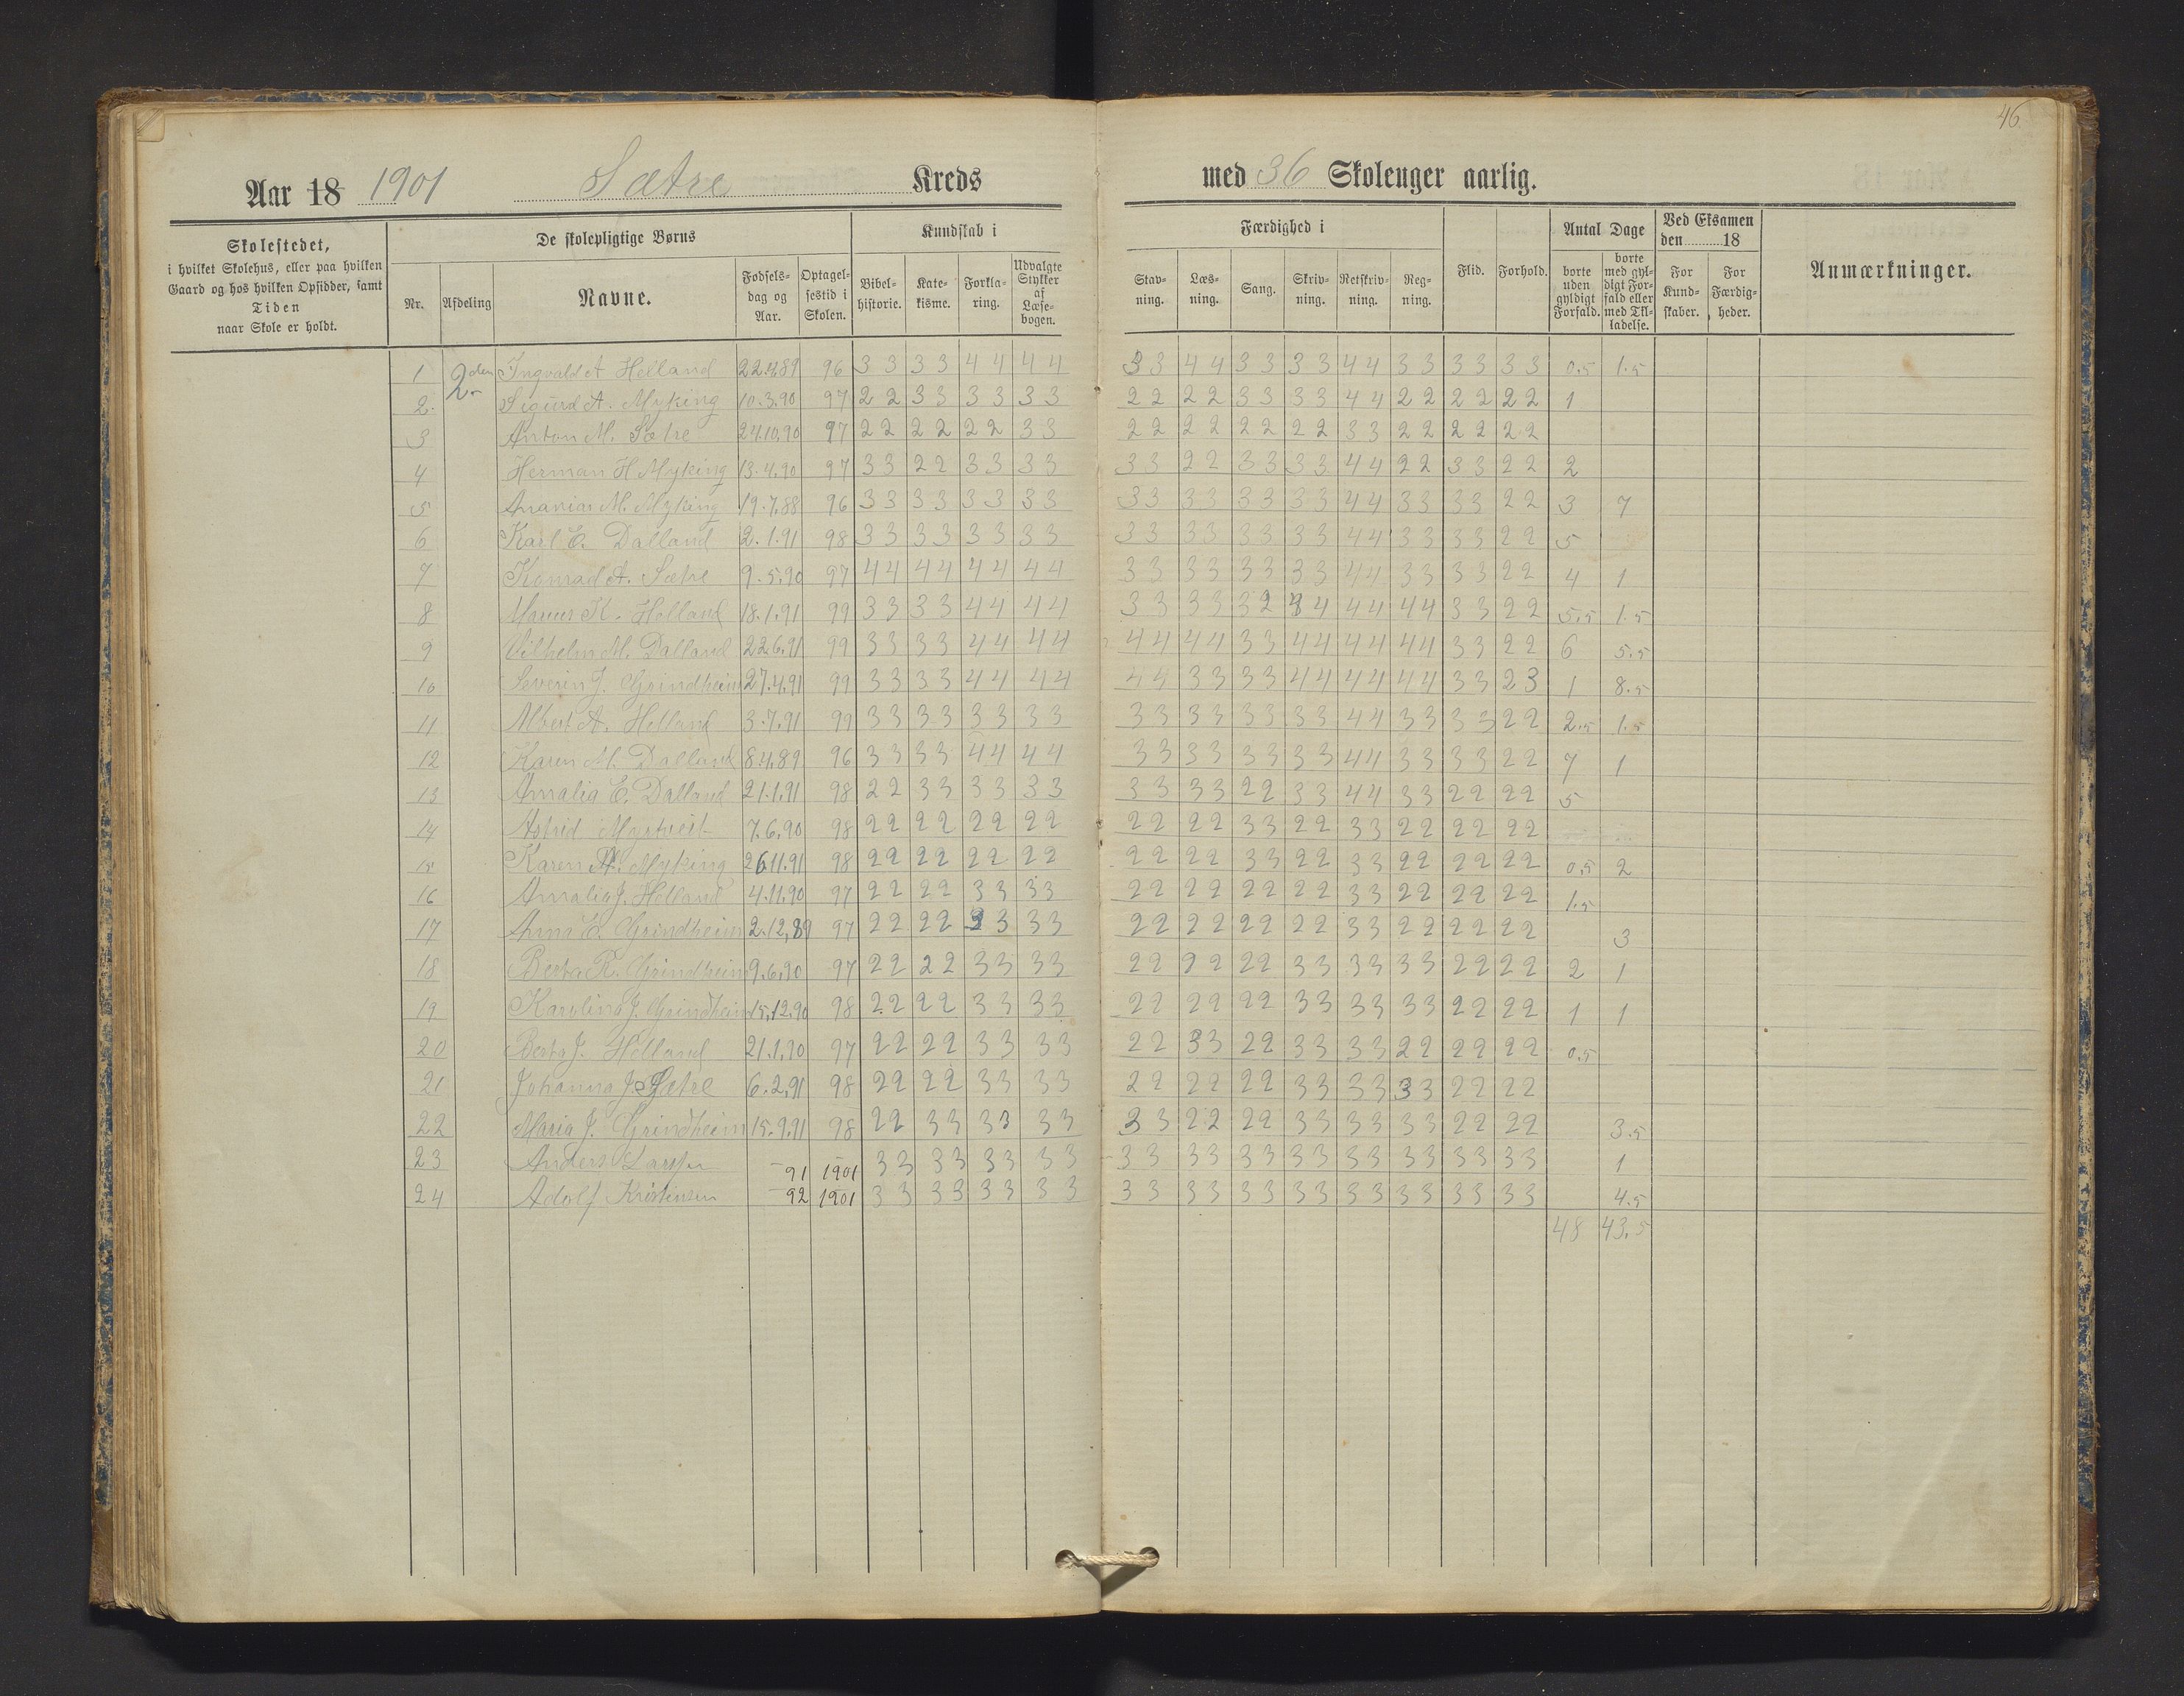 46.
Aar 18 1901 Sætre Kreds med 36 Skolenger aarlig.
Skolestedet, i hvilket Skolehus, eller paa hvilken Gaard og hos hvilken Opsidder, samt Tiden naar Skole er holdt.
De skolepligtige Børns
Nr. Afdeling Navne. Fødselsdag og Aar. Optagelsestid i Skolen.
Kundskab i
Bibelhistorie. Katekisme. Forklaring. Udvalgte Stykker af Læsebogen.
Færdighed i
Stavning. Læsning. Sang. Skrivning. Retskrivning. Regning.
Flid. Forhold.
Antal Dage
borte uden gyldigt Forfald. borte med gyldigt Forfald eller med Tilladelse.
Ved Eksamen den 18
For Kundskaber. For Færdigheder.
Anmærkninger.
1 2den Ingvald A Helland 22.4.89 96 3 3 3 3 4 4 4 4 3 3 4 4 3 3 3 3 4 4 3 3 3 3 3 3 0.5 1.5
2. Sigurd A. Myking 10.3.90 97 2 2 3 3 3 3 3 3 2 2 2 2 3 3 3 3 4 4 2 2 2 2 2 2 1
3 Anton M. Sætre 24.10.90 97 2 2 2 2 2 2 3 3 2 2 2 2 2 2 2 2 3 3 2 2 2 2 2 2
4 Herman H Myking 13.4.90 97 3 3 2 2 3 3 3 3 3 3 2 2 3 3 3 3 4 4 2 2 3 3 2 2 2
5 Ananias M. Myking 19.7.88 96 3 3 3 3 3 3 3 3 3 3 3 3 3 3 3 3 4 4 3 3 3 3 2 2 3 7
6 Karl E. Dalland 2.1.91 98 3 3 3 3 3 3 3 3 3 3 3 3 3 3 3 3 4 4 3 3 3 3 2 2 5
7 Konrad A. Sætre 9.5.90 97 4 4 4 4 4 4 4 4 3 3 3 3 3 3 3 3 4 4 3 3 3 3 2 2 4 1
8 K. Helland 18.1.91 99 3 3 3 3 4 4 4 4 3 3 3 3 3 2 3 4 4 4 4 4 3 3 2 2 5.5 1.5
9 Vilhelm M. Dalland 22.6.91 99 3 3 3 3 4 4 4 4 4 4 4 4 3 3 4 4 4 4 4 4 3 3 2 2 6 5.5
10 Severin J. Grindheim 27.4.91 99 3 3 3 3 4 4 4 4 4 4 3 3 3 3 4 4 4 4 4 4 3 3 2 3 1 8.5
11 Albert A. Helland 3.7.91 99 3 3 3 3 3 3 3 3 3 3 3 3 3 3 3 3 4 4 3 3 3 3 2 2 2.5 1.5
12 Karen M. Dalland 8.4.89 96 3 3 3 3 4 4 4 4 3 3 3 3 3 3 3 3 4 4 3 3 3 3 2 2 7 1
13 Amalia E. Dalland 21.1.91 98 2 2 3 3 3 3 3 3 3 3 3 3 2 2 3 3 4 4 3 3 2 2 2 2 5
14 Astrid Myrtveit 7.6.90 98 2 2 2 2 2 2 2 2 2 2 2 2 3 3 2 2 3 3 2 2 2 2 2 2
15 Karen M. Myking 26.11.91 98 2 2 2 2 2 2 2 2 2 2 2 2 3 3 2 2 3 3 2 2 2 2 2 2 0.5 2
16 Amalia J. Helland 4.11.90 97 2 2 2 2 3 3 3 3 2 2 2 2 2 2 2 2 3 3 2 2 2 2 2 2 1.5
17 Anna E. Grindheim 2.12.89 97 2 2 2 2 3 3 3 3 2 2 2 2 2 2 2 2 3 3 2 2 2 2 2 2 3
18 Berta R. Grindheim 9.6.90 97 2 2 2 2 3 3 3 3 2 2 2 2 2 2 3 3 3 3 3 3 2 2 2 2 2 1
19 Karolina J. Grindheim 15.12.90 98 2 2 2 2 3 3 3 3 2 2 2 2 2 2 3 3 3 3 3 3 2 2 2 2 1 1
20 Berta J. Helland 21.1.90 97 2 2 2 2 3 3 3 3 2 2 3 3 2 2 3 3 3 3 2 2 2 2 2 2 0.5
21 Johanna J. Sætre 6.2.91 98 2 2 2 2 3 3 3 3 2 2 2 2 2 2 3 3 3 3 3 3 2 2 2 2
22 Maria J. Grindheim 15.9.91 98 2 2 3 3 3 3 3 3 3 3 2 2 2 2 3 3 3 3 3 3 2 2 2 2 3.5
23 Anders Larsen 91 1901 3 3 3 3 3 3 3 3 3 3 3 3 3 3 3 3 3 3 3 3 3 3 3 3 1
24 Adolf Kristensen 92 1901 3 3 3 3 3 3 3 3 3 3 3 3 3 3 3 3 3 3 3 3 3 3 3 3 4.5
48 43.5